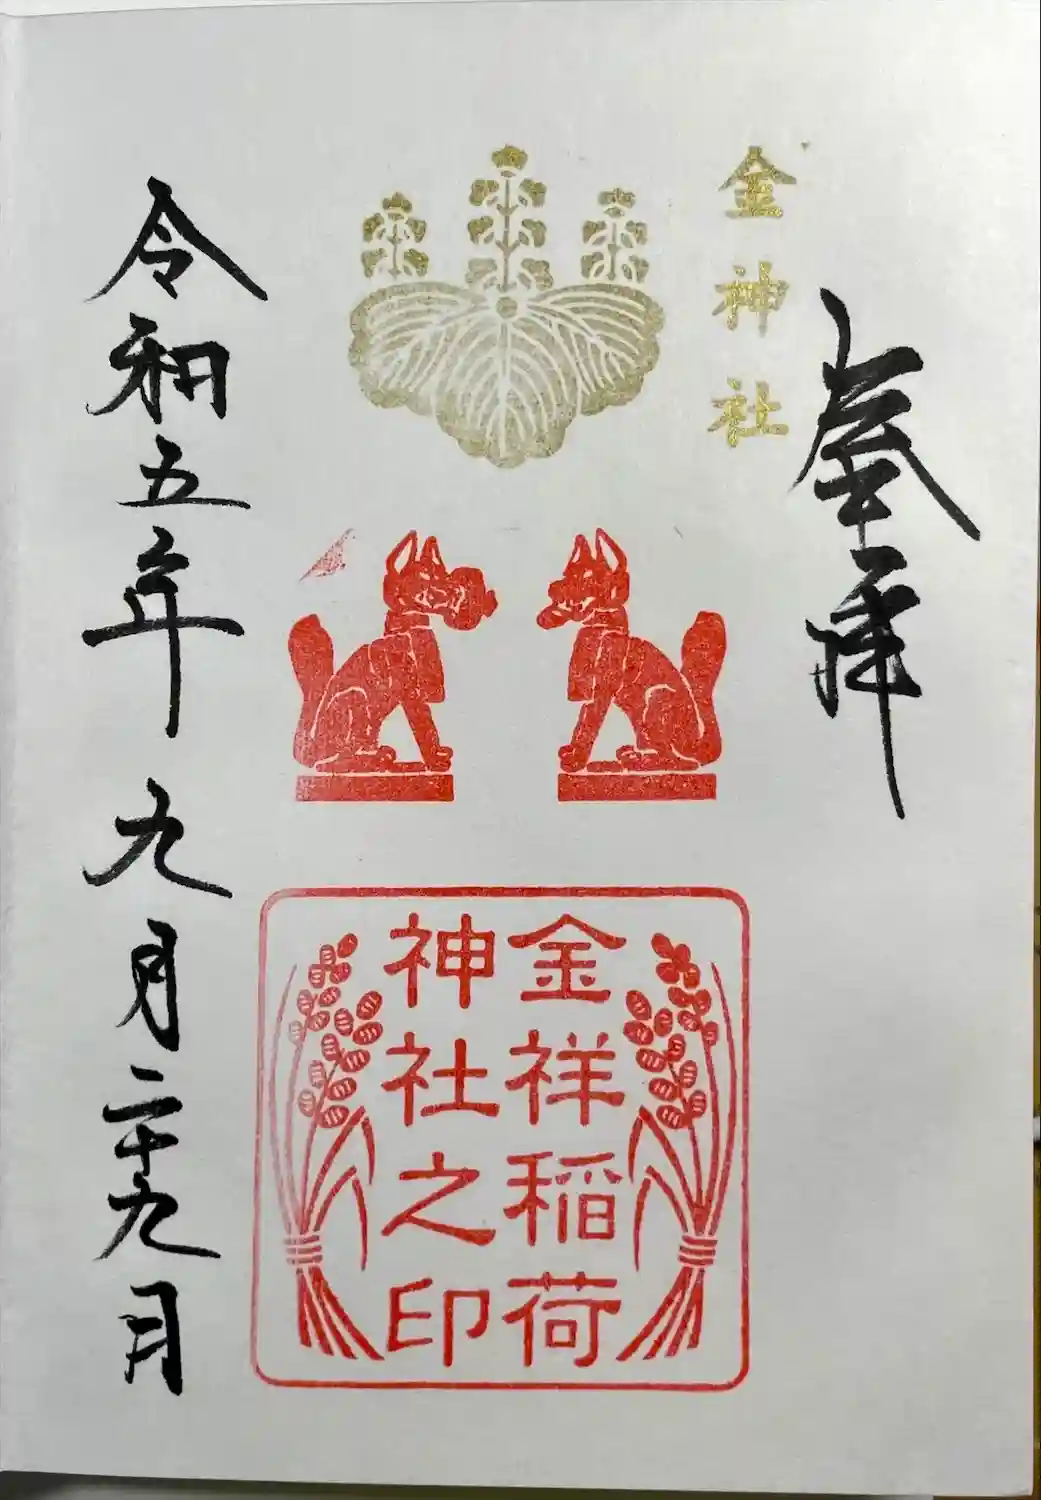 奉拝
金神社
金祥稲荷
神社之印
令和五年 九月二十九日